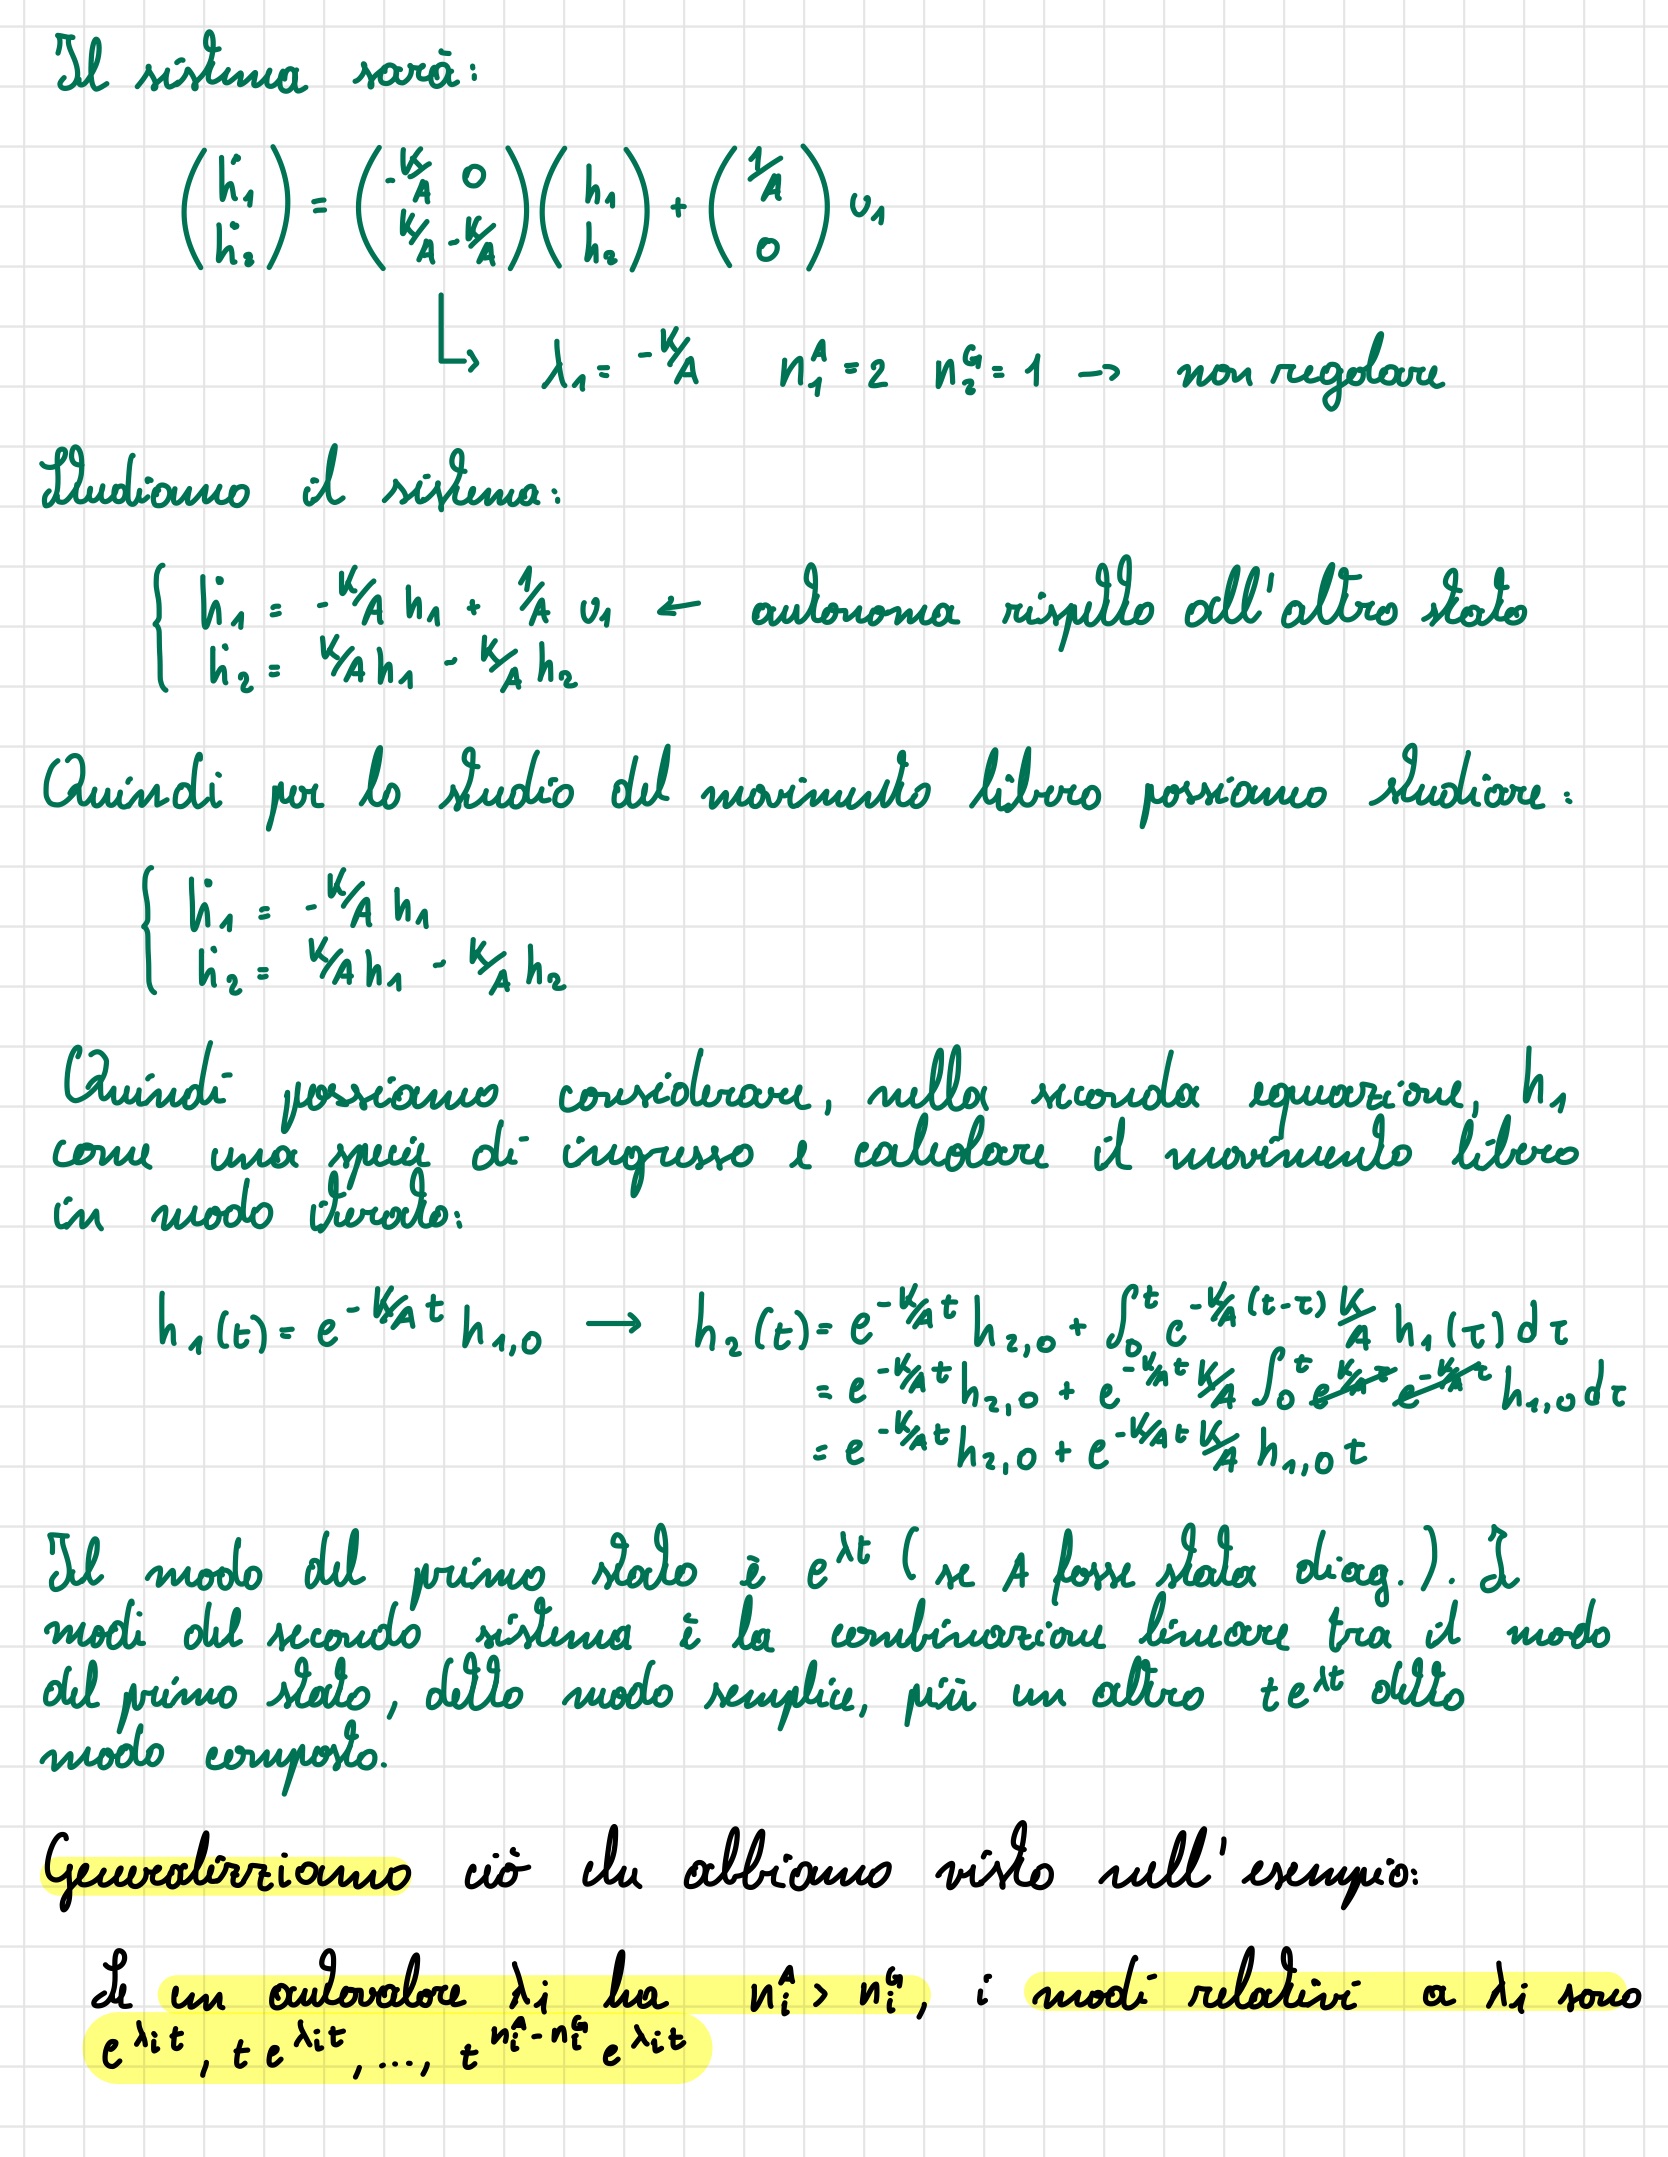 Il sistema sarà:
(ḣ₁ ḣ₂) = (-K/A 0 K/A -K/A)(h₁ h₂) + (1/A 0) υ₁
↳ λ₁ = -K/A n₁ᴬ = 2 n₂ᴳ = 1 → non regolare
Studiamo il sistema:
{ ḣ₁ = -K/A h₁ + 1/A υ₁ ← autonoma rispetto all'altro stato
ḣ₂ = K/A h₁ - K/A h₂
Quindi per lo studio del movimento libero possiamo studiare:
{ ḣ₁ = -K/A h₁
ḣ₂ = K/A h₁ - K/A h₂
Quindi possiamo considerare, nella seconda equazione, h₁
come una specie di ingresso e calcolare il movimento libero
in modo iterato:
h₁(t) = e^(-K/A t) h₁,₀ → h₂(t) = e^(-K/A t) h₂,₀ + ∫₀ᵗ e^(-K/A (t-τ)) K/A h₁(τ) dτ
= e^(-K/A t) h₂,₀ + e^(-K/A t) K/A ∫₀ᵗ e^(K/A τ) e^(-K/A τ) h₁,₀ dτ
= e^(-K/A t) h₂,₀ + e^(-K/A t) K/A h₁,₀ t
Il modo del primo stato è e^(λt) (se A fosse stata diag.). I
modi del secondo sistema è la combinazione lineare tra il modo
del primo stato, detto modo semplice, più un altro te^(λt) detto
modo composto.
Generalizziamo ciò che abbiamo visto nell'esempio:
Se un autovalore λi ha nᵢᴬ > nᵢᴳ, i modi relativi a λi sono
e^(λᵢt), t e^(λᵢt), ..., t^(nᵢᴬ-nᵢᴳ) e^(λᵢt)